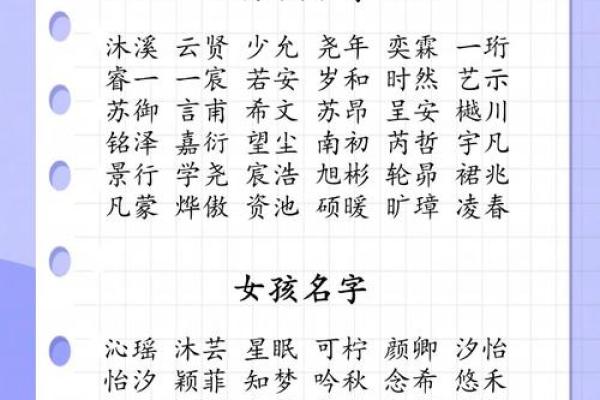 沐溪 云贤 少允 尧年 奕霖 一珩
睿一 一宸 若安 岁和 时然 艺示
苏御 言甫 希文 苏昂 呈安 樾川
铭泽 嘉衍 望尘 南初 芮哲 宇凡
景行 学尧 宸浩 旭彬 轮昴 裙兆
凡蒙 烨傲 资池 硕暖 旷璋 凌春
女孩名字
沁瑶 沐芸 星眠 可柠 颜卿 汐怡
怡汐 颖菲 知梦 吟秋 念希 悠禾